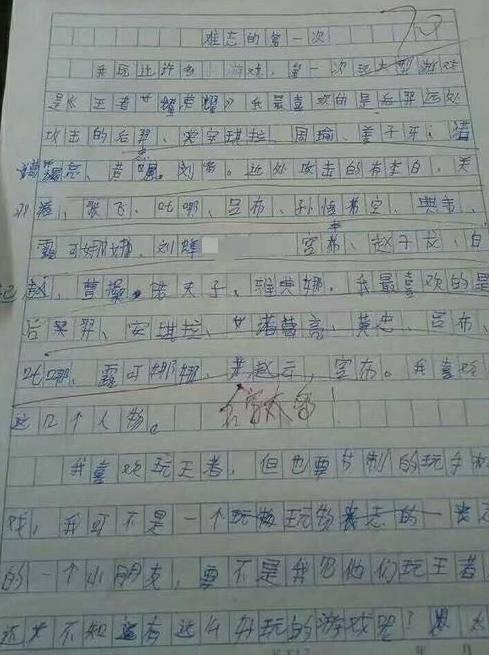 难忘的第一次
我玩过许多游戏，第一次玩大型游戏
是《王者荣耀》我最喜欢的是后羿远处
攻击的后羿、安琪拉、周瑜、姜子牙、诸
葛亮、黄忠。刘备。近处攻击的有李白、关
羽、张飞、哪吒、吕布、孙悟空、典韦、
露可娜娜、刘 宫本、赵子龙、白
起、曹操。老夫子、雅典娜，我最喜欢的是
后羿、安琪拉、诸葛亮、黄忠、吕布、
露可娜娜、赵云、宫布。我喜
这几个人物。
名字太多!
我喜欢玩王者，但也要节制的玩
戏，我可不是一个玩物丧志的
的一个小朋友，要不是我和他们玩王者
还不知道有这么好玩的游戏呢！